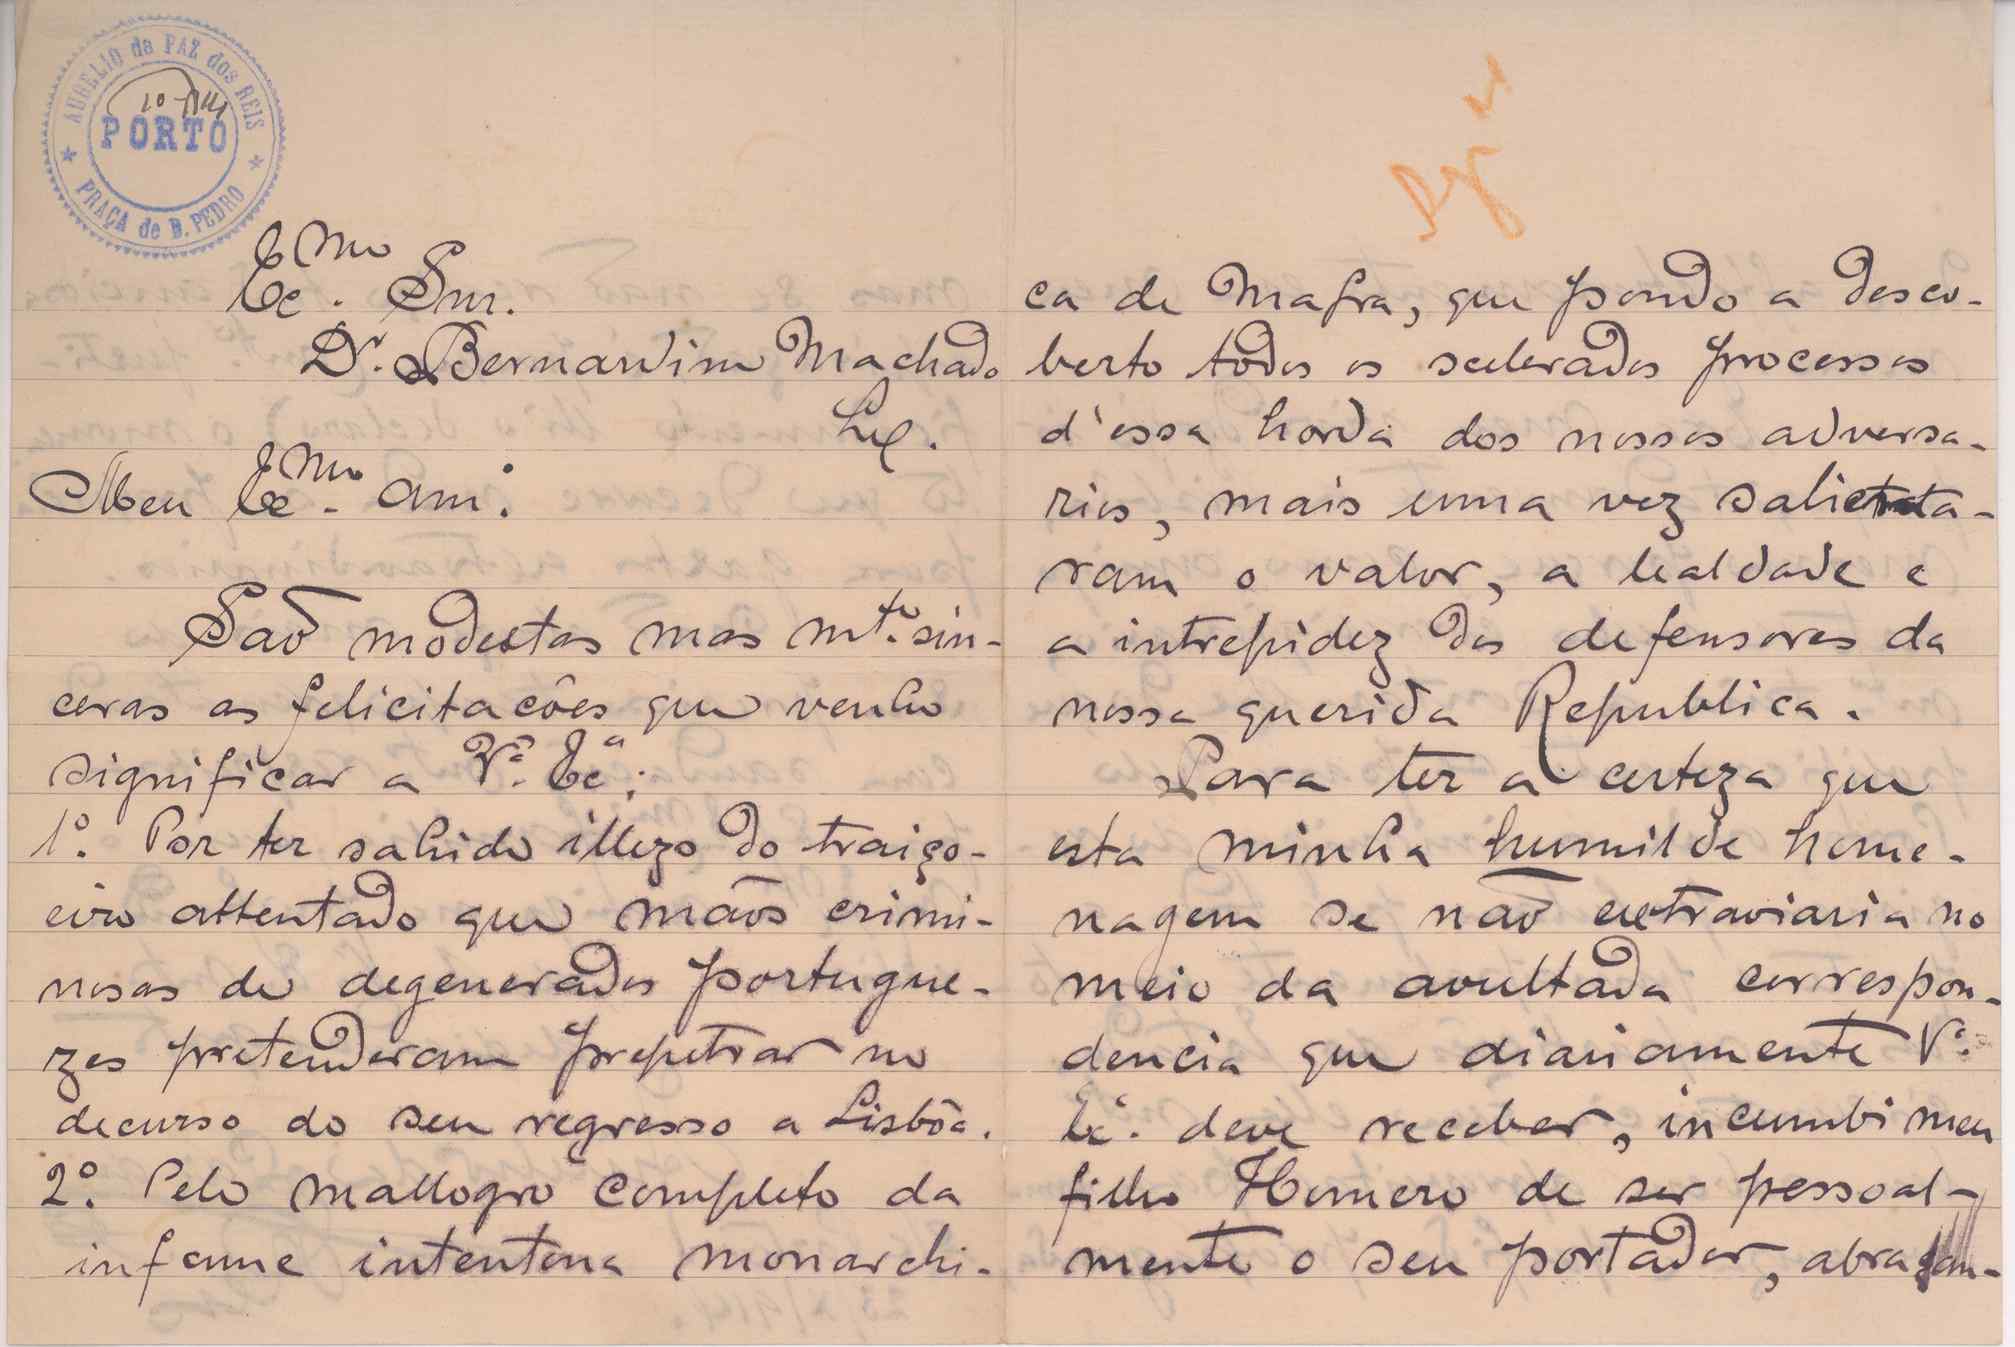 AURELIO da PAZ dos REIS
PORTO
PRAÇA de D. PEDRO
Exmo Snr.
Dr. Bernardino Machado
Lx.
Meu Exmo Amo.
São modestas mas mto sin-
ceras as felicitacões que venho
significar a Va. Exa:
1º. Por ter sahido illezo do traiço-
eiro attentado que mãos crimi-
nosas de degenerados portugue-
zes pretenderam prepetrar no
decurso do seu regresso a Lisbôa.
2º. Pelo mallogro completo da
infame intentona monarchi-
ca de Mafra, que pondo a desco-
berto todos os scelerados processos
d'essa horda dos nossos adversa-
rios, mais uma vez salienta-
ram o valor, a lealdade e
a intrepidez dos defensores da
nossa querida Republica.
Para ter a certeza que
esta minha humilde home-
nagem se não extraviaria no
meio da avultada correspon-
dencia que diariamente Va.
Exa. deve receber, incumbi meu
filho Homero de ser pessoal-
mente o seu portador, abraçan-